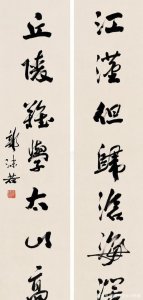 江漢但歸滄海深
丘陵難學太山高
郭沫若